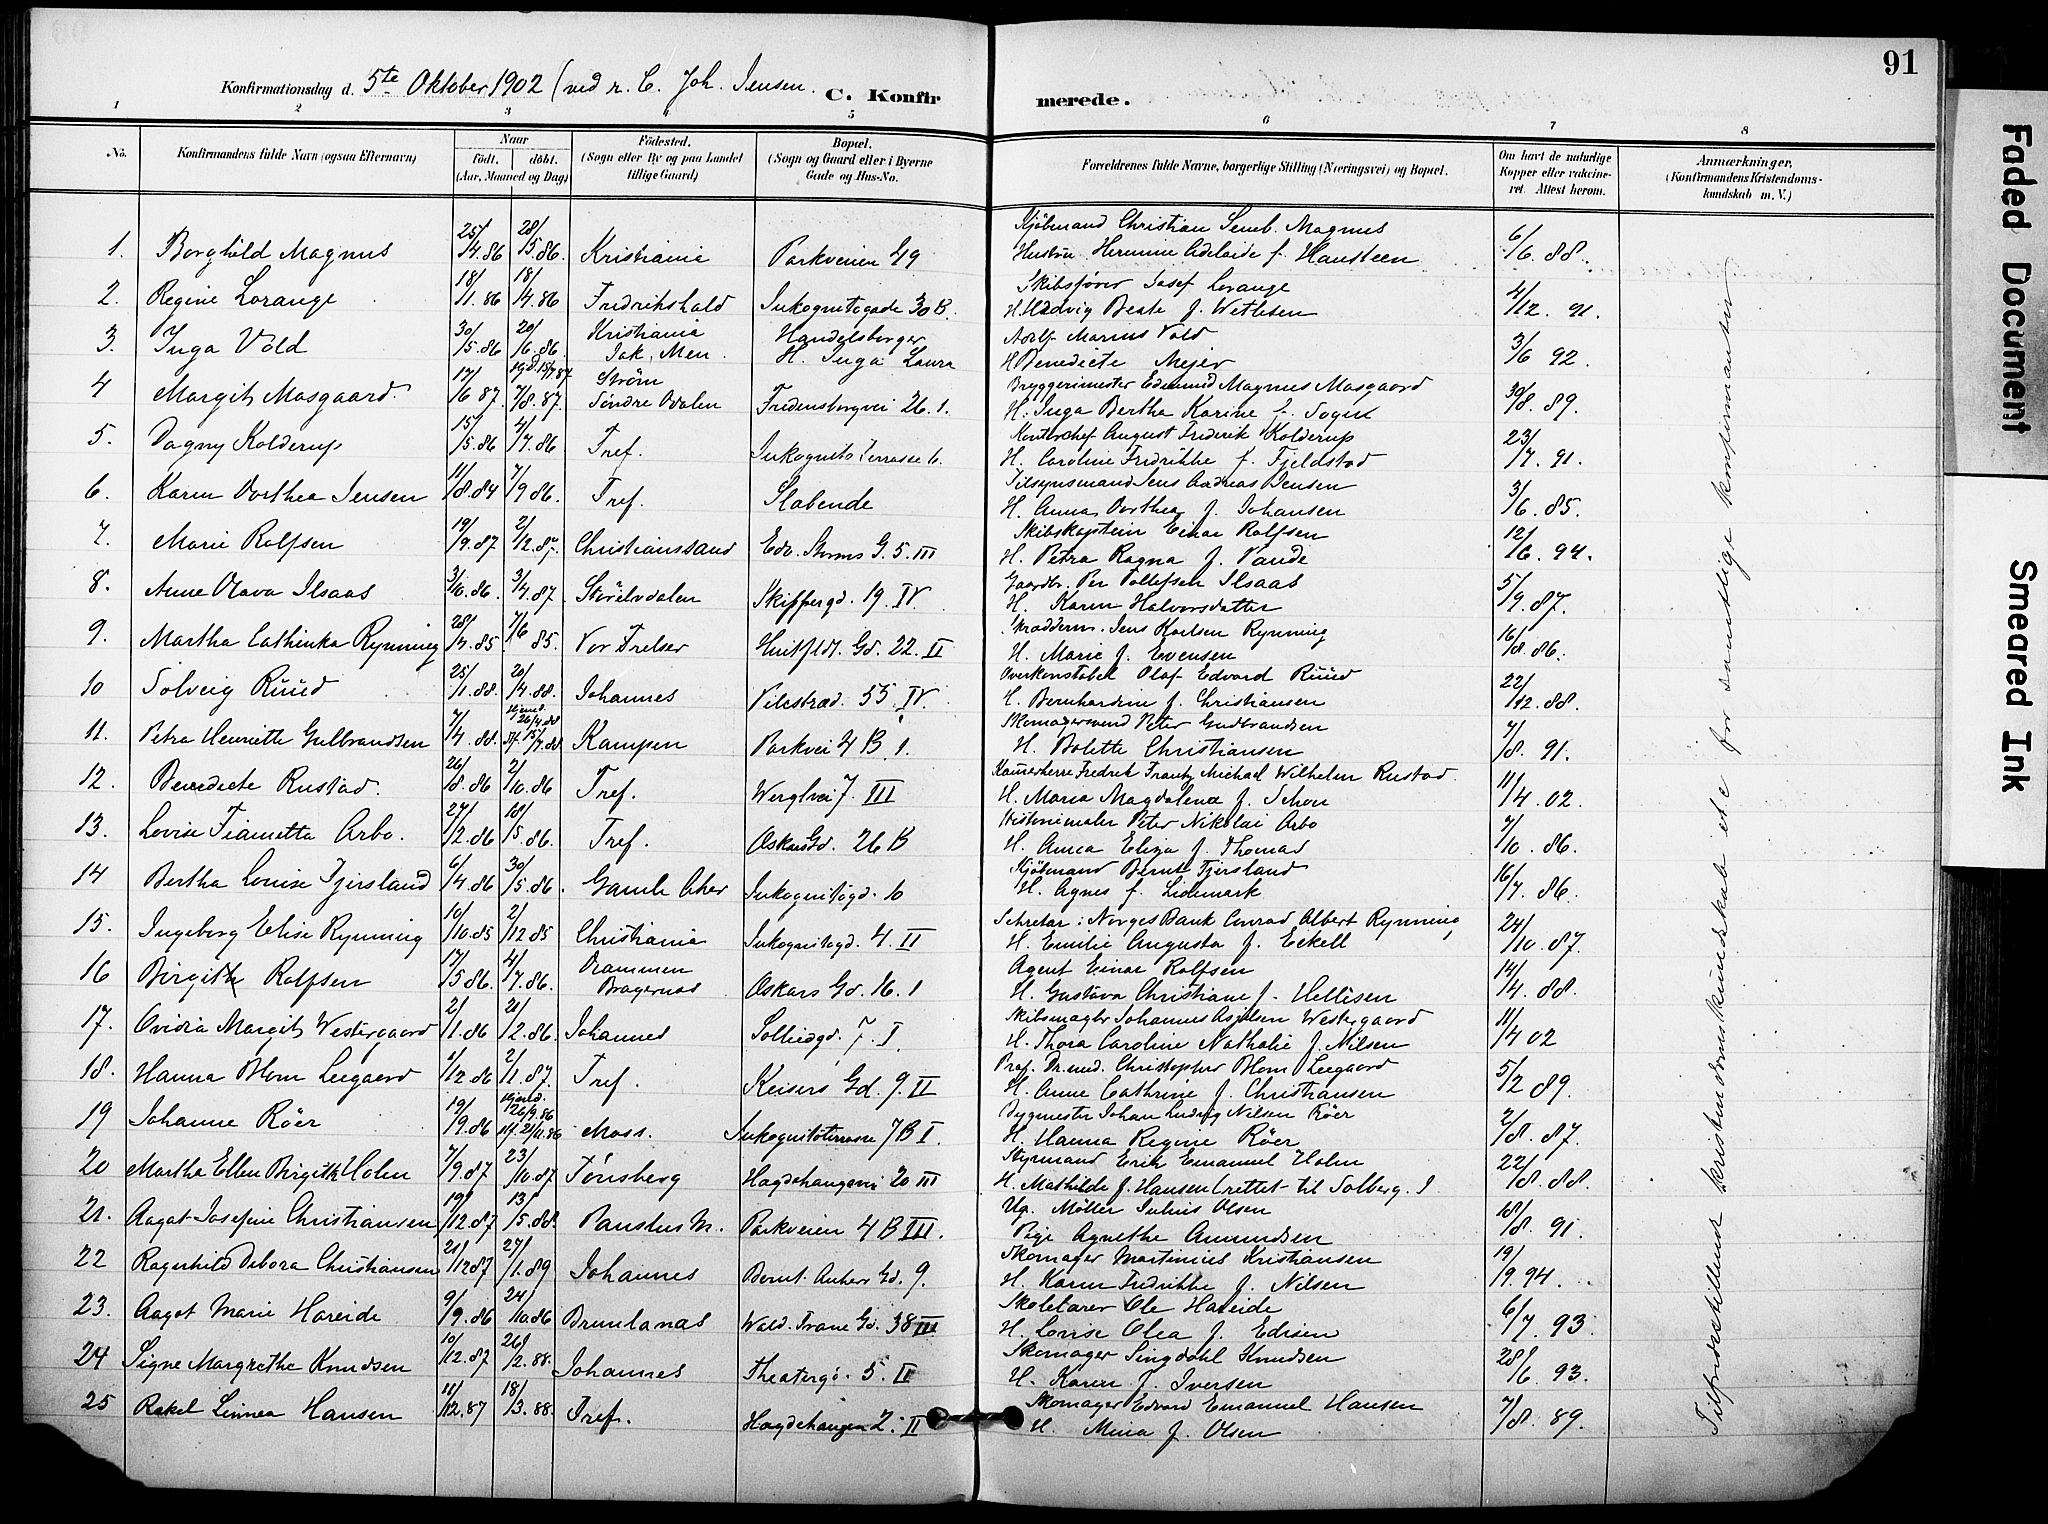 91
Konfirmationsdag d. 5te Oktober 1902 (ved r. C. Joh. Jensen. C. Konfirmerede.
1 2 3 4 5 6 7 8
No. Konfirmandens fulde Navn (ogsaa Efternavn) Naar födt. döbt. (Aar, Maaned og Dag) Födested. (Sogn eller By og paa Landet tillige Gaard) Bopæl. (Sogn og Gaard eller i Byerne Gade og Hus-No. Forældrenes fulde Navne, borgerlige Stilling (Næringsvei) og Bopæl. Om havt de naturlige Kopper eller vakcineret. Attest herom. Anmærkninger. (Konfirmandens Kristendomskundskab m. V.)
Kjöbmand Christian Magnus
1. Borghild Magnus 25/4.86 28/5.86. Kristiania Parkveien 49 Hustru Hermine Adelaide f. Hansteen 6/6. 88.
Skibsfører Josef Lorange
2. Regine Lorange 18/11.86 18/4.86 Fredrikshald Inkognitogade 30 B. H. Hedvig Beate f. Wetlesen 4/12. 91.
Kristiania Handelsborger Adolf Marius Vold
3. Inga Vold 30/5.86 20/6.86. Jak. Men. H. Inga Laura H Benedicte Mejer 3/6 92.
Strøm Bryggerimester Edmund Magnus Masgaard
4 Margit Masgaard. 17/6 87. 7/8. 87. Söndre Odalen Fredensborgvei 26. 1. H. Inga Bertha Karine f. 30/8. 89.
Kontorchef August Frederik Kolderup
5. Dagny Kolderup 15/5.86 4/7.86 Tref. Inkognito Terrasse 6. H. Caroline Fredrikke f. Fjeldstad 23/7. 91.
Tilsynsmand Jens Andreas Jensen
6. Karen Dorthea Jensen 11/8.84 7/9 86. Tref. Slabende H. Anna Dorthea f. Johansen 3/6. 85.
Skibskaptein Einar Rolfsen
7. Marie Rolfsen 19/9.87 2/12.87. Christianssand Edv. Storms G. 5. III H. Petra Ragna f. Vande 12/6. 94.
Gaardbr. Per Tollefsen Ilsaas
8. Anne Olava Ilsaas 3/10.86. 3/4.87 Störelvdalen Skippergd. 19. IV. H. Karen Halvorsdatter 5/9. 87.
Skrædderm. Jens Karlsen Rynning
9. Martha Cathinka Rynning 28/4.85 7/6 85. Vor Frelser Huitfldt. Gd. 22. II H. Marie f. Evensen 16/8. 86.
Overkonstabel Olaf Edvard Ruud
10 Solveig Ruud 25/1.88. 20/4.88. Johannes Pilestræd. 55. IV. H. Bernhardine f. Christiansen 22/12.88.
hjemd. 26/4.88 Skomagersvend Peter Gulbrandsen
11. Petra Henriette Gulbrandsen 7/4 88. 15/7.88 Kampen Parkvei 4 B. 1. H. Bolette Christiansen 7/8. 91.
Kammerherre Fredrik Frantz Michael Wilhelm Rustad
12. Benedicte Rustad. 26/8.86 2/10.86 Tref. Werglvei 7. III H. Maria Magdalena f. Schou 11/4. 02.
Historiemaler Peter Nikolai Arbo
13. Lovise Fiametta Arbo. 27/2.86 10/5.86. Tref. Oskars Gd. 26 B H. Anna Eliza f. Thomas 7/10. 86.
Kjöbmand Bernt Fjersland
14 Bertha Louise Fjersland 6/4.86 30/5.86. Gamle Aker Inkognitogd. 10 H. Agnes f. Lidemark 16/7. 86.
Sekretær i Norges Bank Conrad Albert Rynning
15. Ingeborg Elise Rynning 10/10.85 2/12 85 Christiania Inkognitogd. 4. II H. Emilie Augusta f. Eckell 24/10. 87.
Drammen Agent Einar Rolfsen
16 Birgith Rolfsen 17/5 86. 4/7.86. Bragernas Oskars Gd. 16. 1 H. Gustava Christiane f. Hellisen 14/4. 88.
Skibsmægler Johannes Westergaard
17. Ovidia Margit Westergaard 2/1.86 21/2.86. Johannes Solliedgd. 7. I. H. Thora Caroline Nathalie f. Nilsen 11/4 02
Prof. Dr. med. Christopher Blom Leegaard
18. Hanna Blom Leegaard 1/12.86 2/1.87. Tref. Keisers Gd. 9. II H. Anne Cathrine f. Christiansen 5/2 89.
hjemd. 26/9.86 Bygmester Johan Ludvig Nilsen Röer
19 Johanne Röer 19/9.86 21/11.86 Moss. Inkognitoterrasse 7 B I. H. Hanna Regine Röer 2/8. 87.
Styrmand Erik Emanuel Holm
20 Martha Ellen Birgith Holm 7/9.87 23/10.87 Tönsberg Hægdehaugsvei 20 III H. Mathilde f. Hansen (rettet til Solberg. J 22/8. 88.
Ug. Möller Julius Olsen
21. Aagot Josefine Christiansen 19/12.87 13/5.88. Paulus M. Parkveien 4 B III. Pige Agnethe Amundsen 18/8. 91.
Skomager Martinius Kristiansen
22 Ragnhild Debora Christiansen 21/12 87 27/1.89 Johannes Bernt Ankers Gd. 9. H. Karen Fredrikke f. Nilsen 19/9. 94.
Skolelærer Ole Hareide
23. Aagot Marie Hareide 9/9.86 24/10.86 Brunlanas Wald. Trane Gd. 38 III H. Lovise Olea f. Edisen 6/7. 93.
Skomager Singdahl Knudsen
24 Signe Margrethe Knudsen 10/12.87 26/2.88. Johannes Theatergd. 5. II H. Karen f. Iversen 28/6 93.
Skomager Edvard Emanuel Hansen
25 Rakel Linnea Hansen 11/12.87 18/3.88. Tref. Hægdehaugen 2. II H. Mina f. Olsen 7/8. 89.
Tilfredsstillende kristendomskundskab etc for samtlige konfirmanter
Faded Document
Smeared Ink